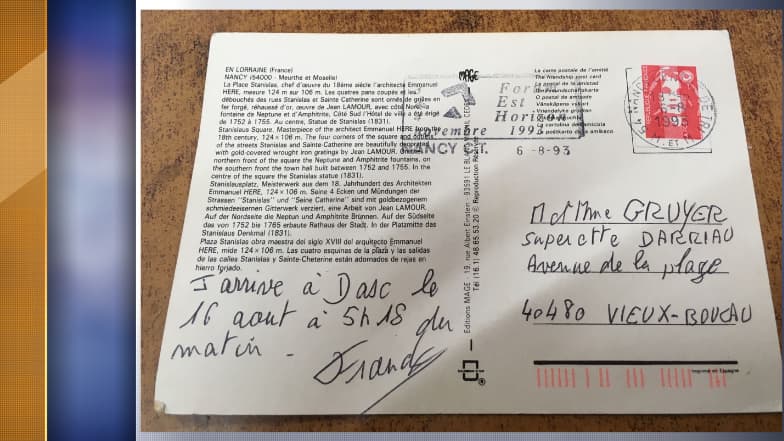 EN LORRAINE (France)
NANCY (54000 - Meurthe et Moselle)
La Place Stanislas, chef d'œuvre du 18ème siècle l'architecte Emmanuel
HERE, mesure 124 m sur 106 m. Les quatres pans coupés et les
débouchés des rues Stanislas et Sainte Catherine sont ornés de grilles en
fer forgé, réhaussé d'or, œuvre de Jean LAMOUR, avec côté Nord la
fontaine de Neptune et d'Amphitrite, Côté Sud l'Hôtel de ville a été érigé
de 1752 à 1755. Au centre, Statue de Stanislas (1831).
Stanislaus Square. Masterpiece of the architect Emmanuel HERE from the
18th century, 124 × 106 m. The four corners of the square and
of the streets Stanislas and Sainte-Catherine are beautifully decorated
with gold-covered wrought iron gratings by Jean LAMOUR. On the
northern front of the square the Neptune and Amphitrite fountains, on
the southern front the town hall built between 1752 and 1755. In the
centre of the square the Stanislas statue (1831).
Stanislausplatz, Meisterwerk aus dem 18. Jahrhundert des Architekten
Emmanuel HERE, 124 × 106 m. Seine 4 Ecken und Mündungen der
Strassen "Stanislas" und "Seine Catherine" sind mit goldbezogenem
schmiedeeisernen Gitterwerk verziert, eine Arbeit von Jean LAMOUR.
Auf der Nordseite die Neptun und Amphitrite Brunnen. Auf der Südseite
das von 1752 bis 1765 erbaute Rathaus der Stadt. In der Platzmitte das
Stanislaus Denkmal (1831).
Plaza Stanislas obra maestra del siglo XVIII del arquitecto Emmanuel
HERE, mide 124 × 106 m. Las cuatro esquinas de la plaza y las salidas
de las calles Stanislas y Sainte-Cheterine están adornados de rejas en
hierro forjado.
J'arrive à Dasc le
16 aout à 5h18 du
matin -
Franck
MAGE
Editions MAGE - 19, rue Albert Einstein - 93591 LE BLANC MESNIL
Tél (16.1) 48.65.53.20 © Reproduction
La carte postale de l'amitié
The friendship post card
La postal de la amistad
Die Freundschaftskarte
O postal da amizade
Vänskapens vykort
La cartolina dell'amicizia
La poŝtkarto de amikeco
For
Est
Horizon
Novembre 1993
NANCY CT. 6 -8-93
Madame GRUYER
Superette DARRIAU
Avenue de la plage
40480 VIEUX-BOUCAU
Imprimé en Espagne